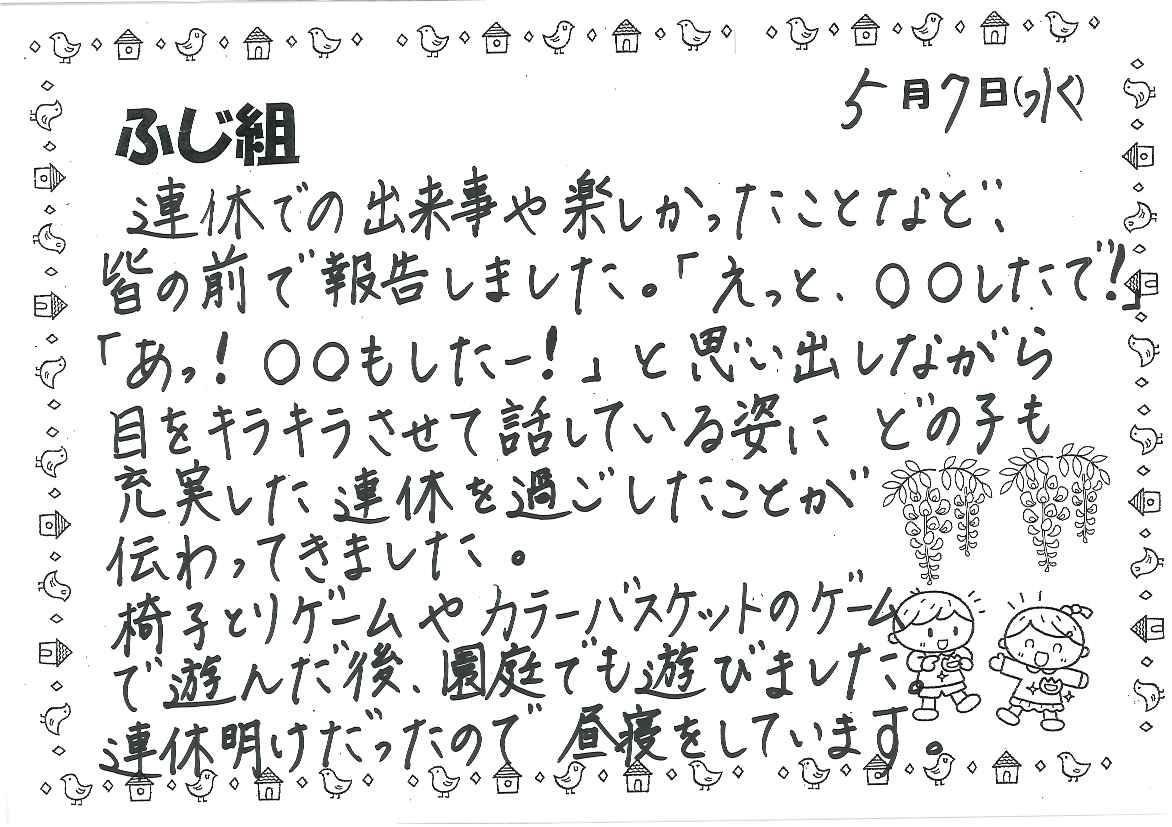 5月7日(水)
ふじ組
連休での出来事や楽しかったことなど、
皆の前で報告しました。「えっと、〇〇したで!」
「あっ!〇〇もしたー!」と思い出しながら
目をキラキラさせて話している姿に どの子も
充実した連休を過ごしたことが
伝わってきました。
椅子とりゲームやカラーバスケットのゲーム
で遊んだ後、園庭でも遊びました。
連休明けだったので 昼寝をしています。